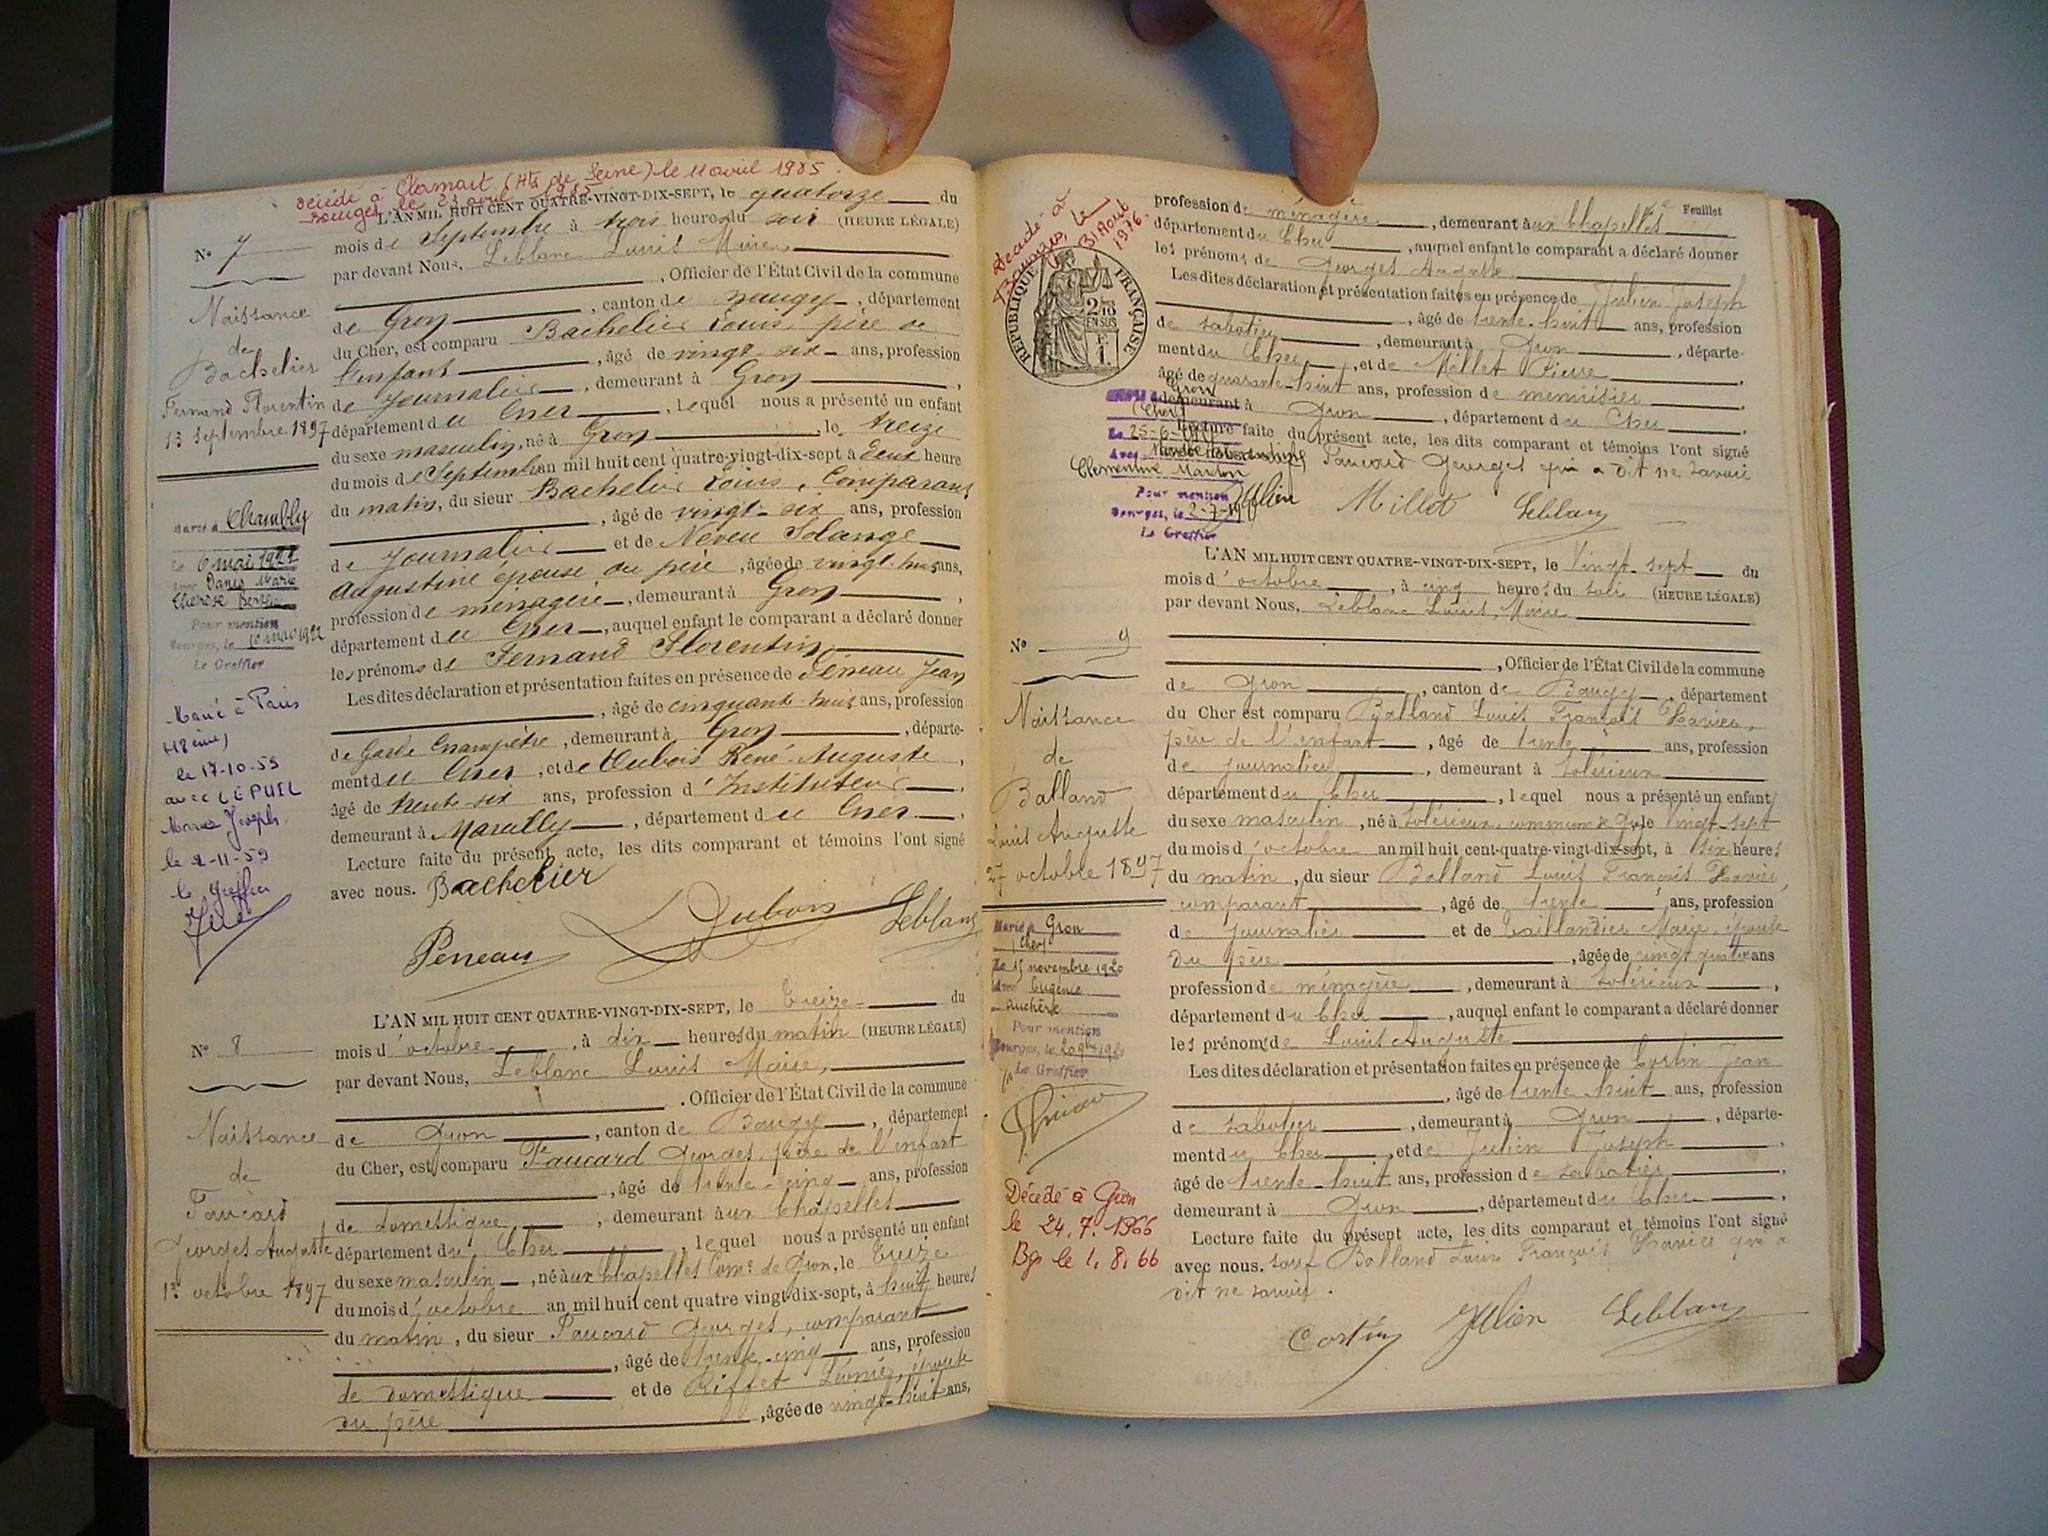 Décédé à Clamart (Hts de Seine) le 11 avril 1985.
Bourges le 23 avril 1985
L'AN MIL HUIT CENT QUATRE-VINGT-DIX-SEPT, le quatorze du
mois de Septembre à trois heure du soir (HEURE LÉGALE)
par devant Nous, Leblanc Louis Maire,
, Officier de l'État Civil de la commune
de Gron, canton de Baugy, département
du Cher, est comparu Bachelier Louis père de
l'enfant, âgé de vingt-six ans, profession
de Journalier, demeurant à Gron,
département du Cher, lequel nous a présenté un enfant
du sexe masculin, né à Gron, le treize
du mois de Septembre an mil huit cent quatre-vingt-dix-sept à deux heure
du matin, du sieur Bachelier Louis, Comparant
, âgé de vingt-six ans, profession
de Journalier et de Neveu Solange
Augustine épouse du père, âgée de vingt-huit ans,
profession de ménagère, demeurant à Gron,
département du Cher, auquel enfant le comparant a déclaré donner
les prénoms de Fernand Florentin
Les dites déclaration et présentation faites en présence de Péneau Jean
, âgé de cinquante-huit ans, profession
de Garde Champêtre, demeurant à Gron, départe-
ment du Cher, et de Dubois René-Auguste,
âgé de trente-six ans, profession d'Instituteur,
demeurant à Marcilly, département du Cher.
Lecture faite du présent acte, les dits comparant et témoins l'ont signé
avec nous. Bachelier
Péneau Dubois Leblanc
N° 7
Naissance
de
Bachelier
Fernand Florentin
13 Septembre 1897
Marié à Chambly
le 6 mai 1922
avec Danis Marie
Thérèse Berthe
Pour mention
Bourges, le 10 mai 1922
Le Greffier
Marié à Paris
(18ème)
le 17-10-59
avec LEPUIL
Marie Joseph.
le 2-11-59
le greffier
L'AN MIL HUIT CENT QUATRE-VINGT-DIX-SEPT, le treize du
mois d'octobre, à dix heures du matin (HEURE LÉGALE)
par devant Nous, Leblanc Louis Maire,
. Officier de l'État Civil de la commune
de Gron, canton de Baugy, département
du Cher, est comparu Faucard Georges, père de l'enfant
, âgé de trente-cinq ans, profession
de domestique, demeurant aux Chapelles
département du Cher, lequel nous a présenté un enfant
du sexe masculin, né aux Chapelles Comne de Gron, le treize
du mois d'octobre an mil huit cent quatre vingt-dix-sept, à huit heures
du matin, du sieur Faucard Georges, comparant
, âgé de trente-cinq ans, profession
de domestique et de Riffet Léonie, épouse
du père, âgée de vingt-huit ans,
N° 8
Naissance
de
Faucard
Georges Auguste
13 octobre 1897
Feuillet
profession de ménagère, demeurant aux Chapelles
département du Cher, auquel enfant le comparant a déclaré donner
les prénoms de Georges Auguste
Les dites déclaration et présentation faites en présence de Julien Joseph
, âgé de trente-huit ans, profession
de sabotier, demeurant à Gron, départe-
ment du Cher, et de Millet Pierre
âgé de quarante-huit ans, profession de menuisier,
demeurant à Gron, département du Cher
Lecture faite du présent acte, les dits comparant et témoins l'ont signé
Faucard Georges qui a dit ne savoir
Julien Millet Leblanc
Décédé à
Bourges, le
31 Août
1976.
RÉPUBLIQUE FRANÇAISE
2/10
EN SUS
Gron
(Cher)
Le 25-6-19
avec
Clementine Marton
Pour mention
Bourges, le 2-7-19
Le Greffier
L'AN MIL HUIT CENT QUATRE-VINGT-DIX-SEPT, le Vingt-sept du
mois d'octobre, à cinq heures du soir (HEURE LÉGALE)
par devant Nous, Leblanc Louis, Maire
, Officier de l'État Civil de la commune
de Gron, canton de Baugy, département
du Cher est comparu Balland Louis François Xavier,
père de l'enfant, âgé de trente ans, profession
de journalier, demeurant à Solérieux
département du Cher, lequel nous a présenté un enfant
du sexe masculin, né à Solérieux, commune de Gron le Vingt-sept
du mois d'octobre an mil huit cent-quatre-vingt-dix-sept, à six heures
du matin, du sieur Balland Louis François Xavier,
comparant, âgé de trente ans, profession
de journalier et de Taillandier Marie, épouse
du père, âgée de vingt quatre ans
profession de ménagère, demeurant à Solérieux,
département du Cher, auquel enfant le comparant a déclaré donner
les prénoms de Louis Auguste
Les dites déclaration et présentation faites en présence de Cortin Jean
, âgé de trente huit ans, profession
de sabotier, demeurant à Gron, départe-
ment du Cher, et de Julien Joseph,
âgé de trente-huit ans, profession de sabotier,
demeurant à Gron, département du Cher,
Lecture faite du présent acte, les dits comparant et témoins l'ont signé
avec nous. sauf Balland Louis François Xavier qui a
dit ne savoir.
Cortin Julien Leblanc
N° 9
Naissance
de
Balland
Louis Auguste
27 octobre 1897
Marié à Gron
(Cher)
Le 15 novembre 1920
avec Eugénie
Auchère
Pour mention
Bourges, le 20 9bre 1920
Le Greffier
Décédé à Gron
le 24.7.1966
Bgs le 1.8.66